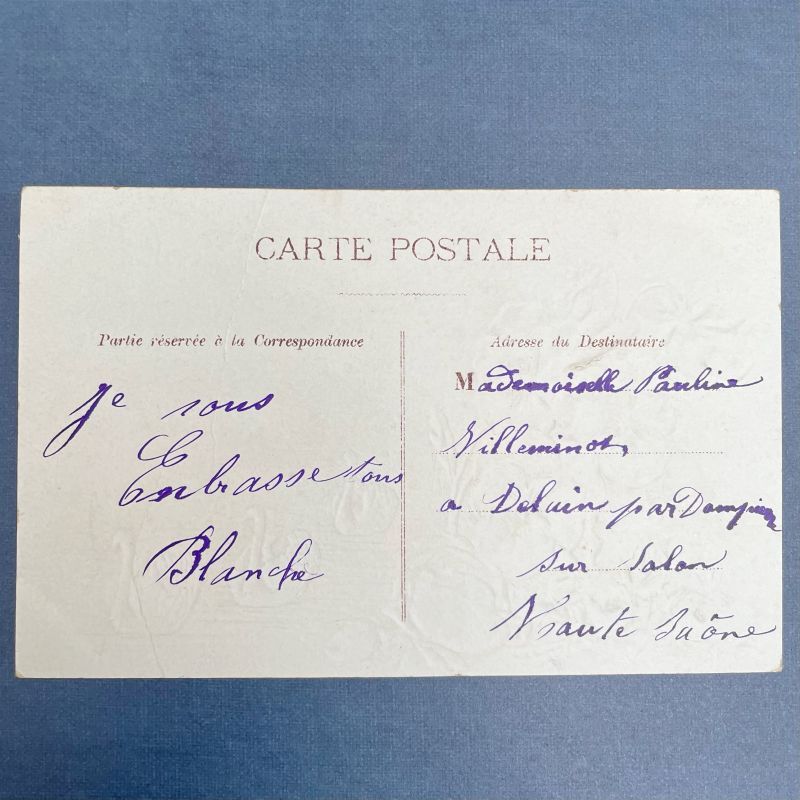 CARTE POSTALE
Partie réservée à la Correspondance
Je vous
Enbrasse tous
Blanche
Adresse du Destinataire
Mademoiselle Pauline
Villeminot
a Delain par Dampierre
sur Salon
Haute Saône